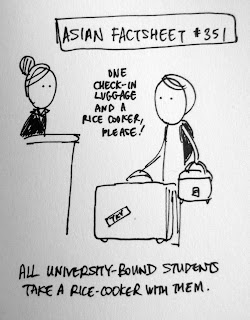 ASIAN FACTSHEET #351
ONE
CHECK-IN
LUGGAGE
AND A
RICE COOKER,
PLEASE!
ALL UNIVERSITY-BOUND STUDENTS
TAKE A RICE-COOKER WITH THEM.